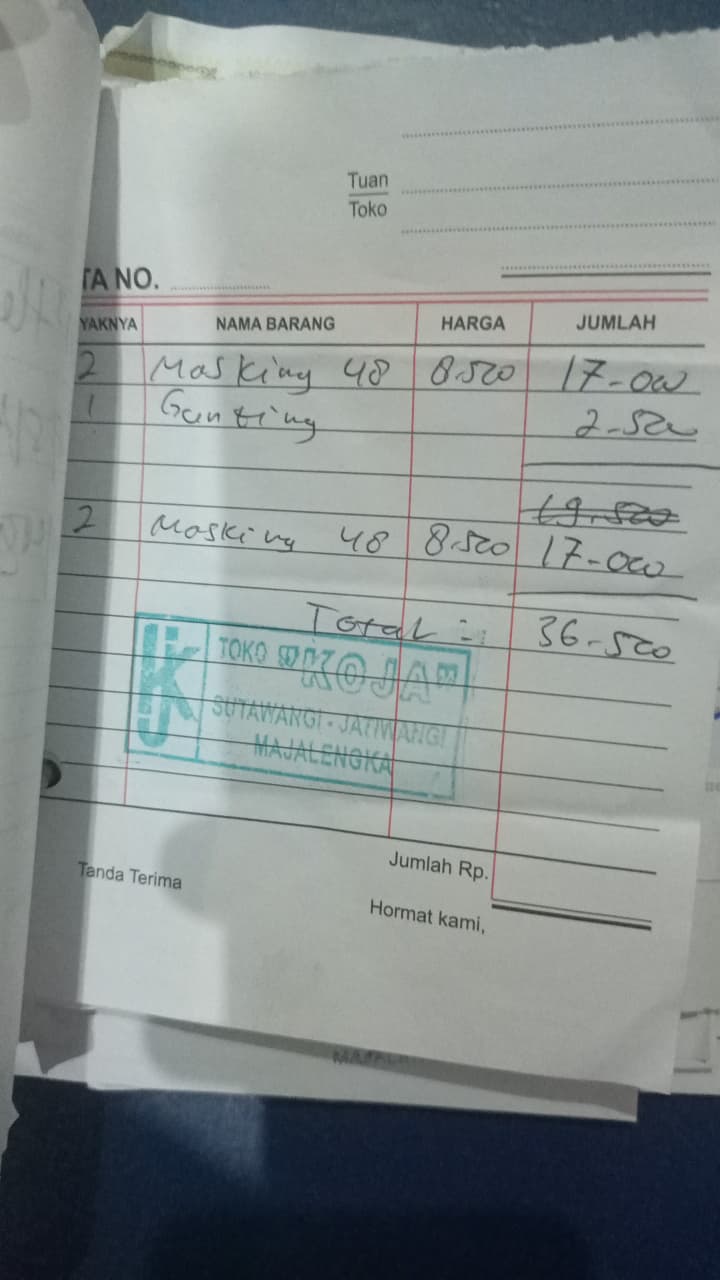 Tuan
Toko
TA NO.
YAKNYA NAMA BARANG HARGA JUMLAH
2 Masking 48 8.500 17-000
1 Gunting 2-500
19.500
2 Masking 48 8.500 17-000
Total = 36-500
TOKO "KOJA"
SUTAWANGI - JATIWANGI
MAJALENGKA
Jumlah Rp.
Tanda Terima
Hormat kami,